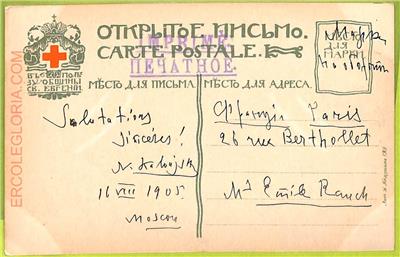 ОТКРЫТОЕ ПИСЬМО.
CARTE POSTALE.
ПЕЧАТНОЕ.
ВЪ ПОЛЬЗУ ОБЩИНЫ
СВ. ЕВГЕНІИ
МѢСТО ДЛЯ ПИСЬМА
МѢСТО ДЛЯ АДРЕСА.
Марка
ДЛЯ
МАРКИ
Salutations
Sincères!
16 VIII 1905
Moscou
Франція Paris
26 rue Berthollet
Mr Emile Rauch
ERCOLEGLORIA.COM